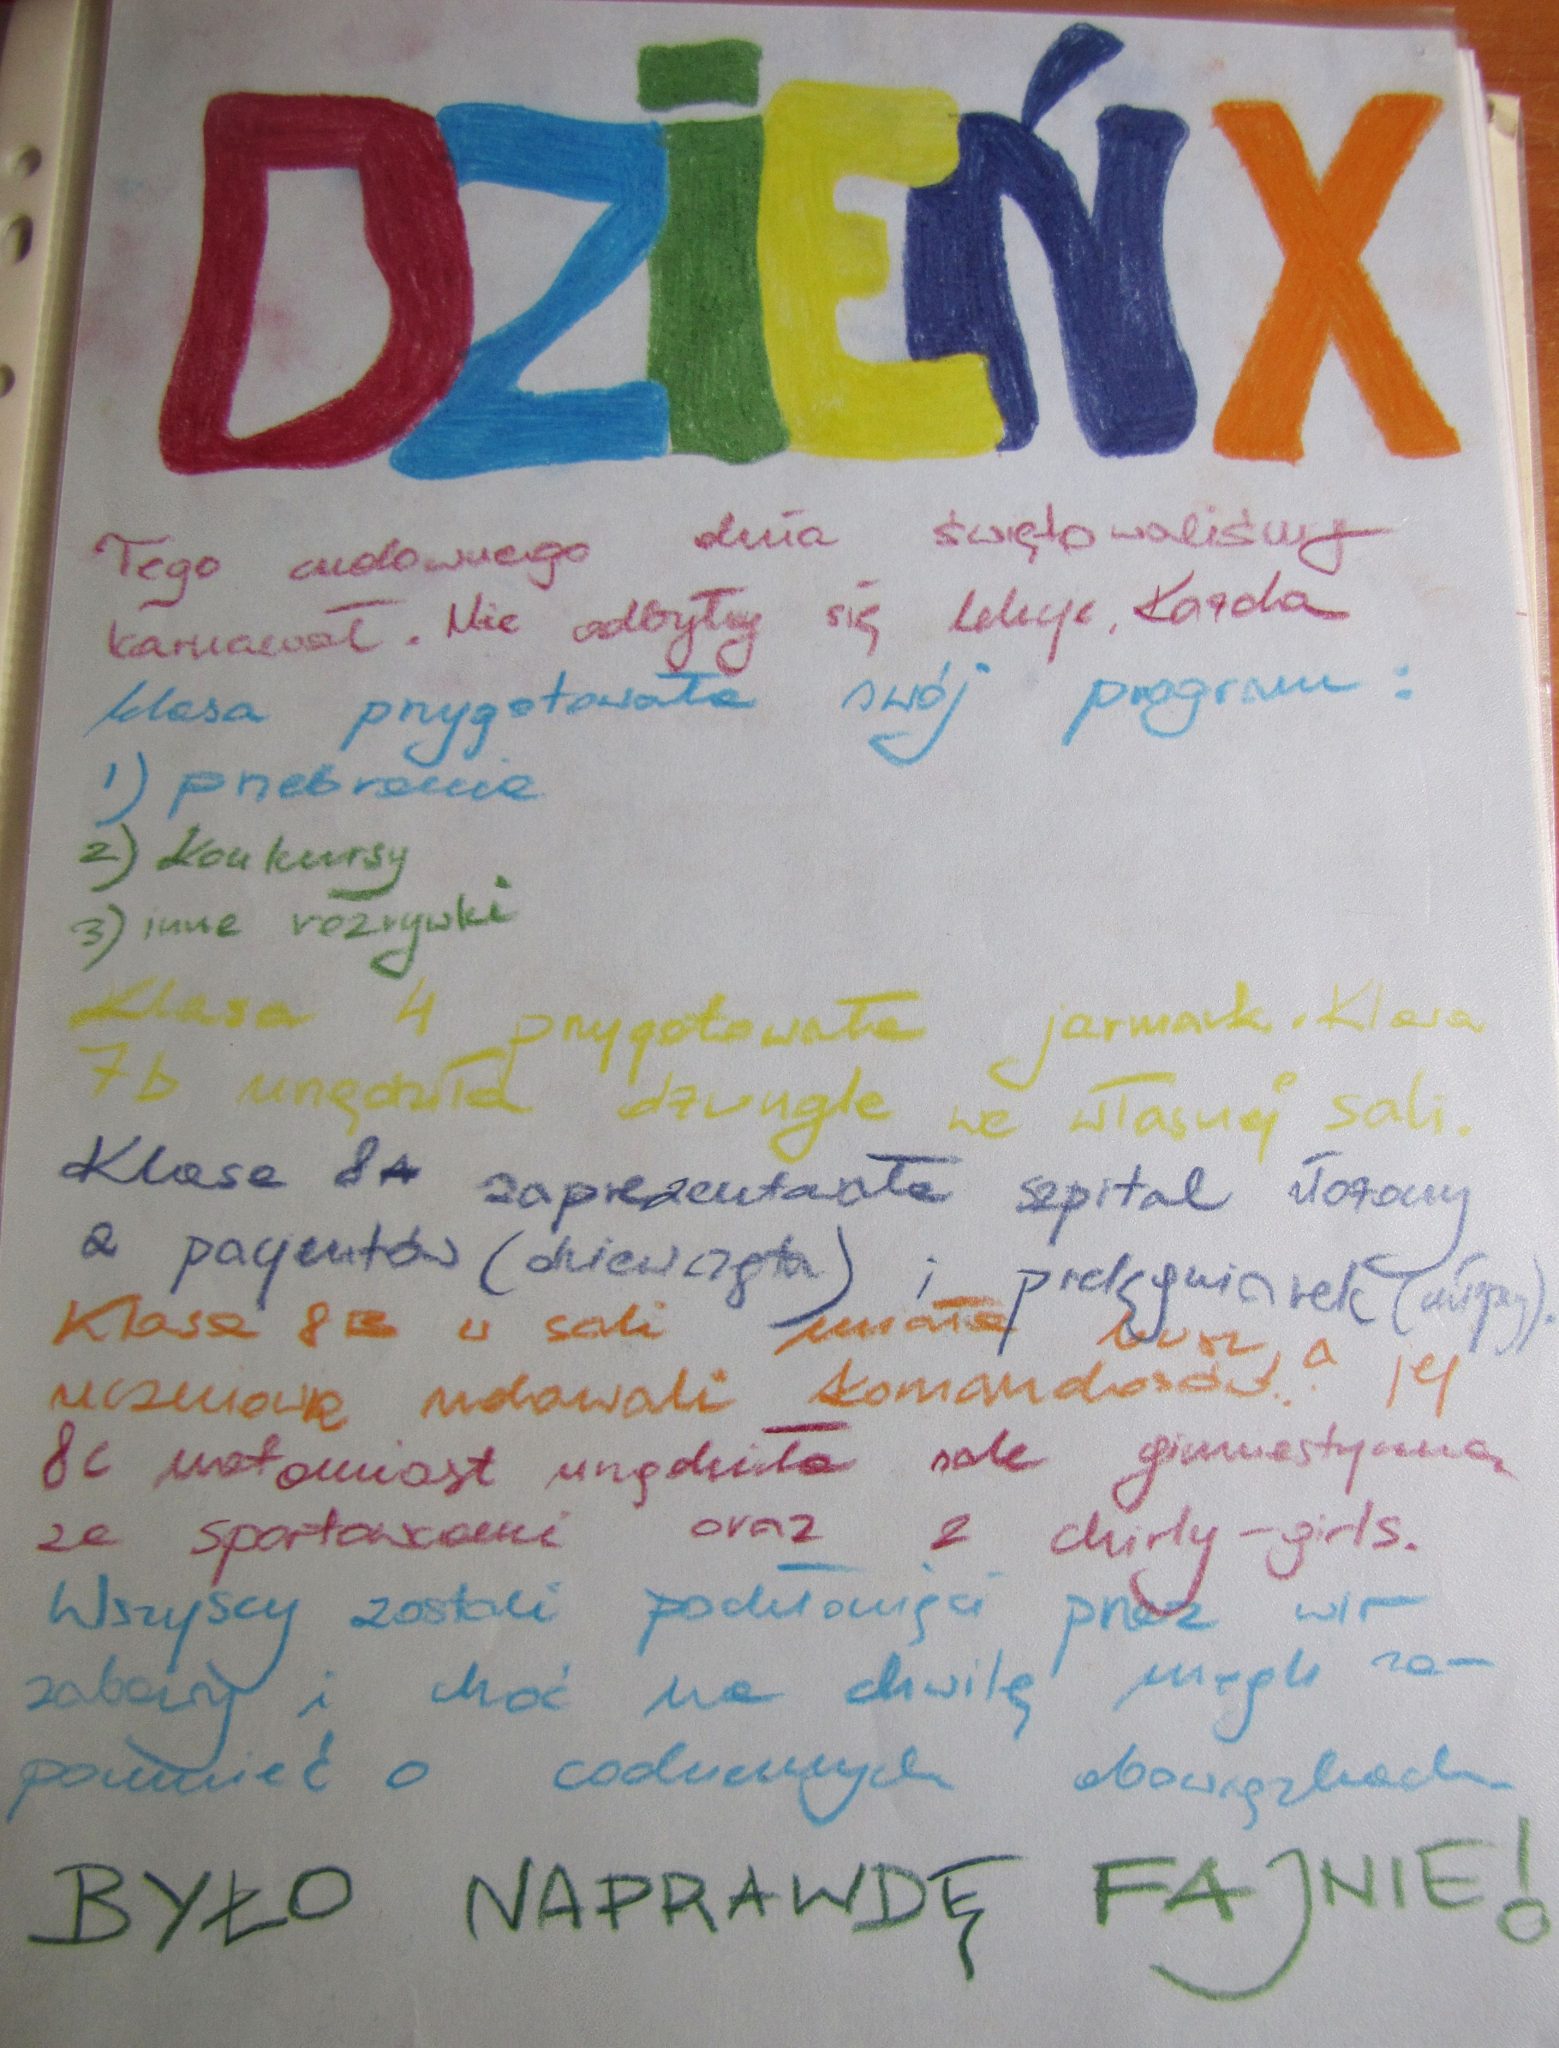 DZIEŃ X
Tego cudownego dnia świętowaliśmy
karnawał. Nie odbyły się lekcje. Każda
klasa przygotowała swój program:
1) przebranie
2) Konkursy
3) inne rozrywki
Klasa 4 przygotowała jarmark. Klasa
7b urządziła dżungle we własnej sali.
Klasa 8A zaprezentowała szpital złożony
z pacjentów (dziewczęta) i pielęgniarek (chłopcy).
Klasa 8B w sali miała busz, a jej
uczniowie udawali komandosów.
8c natomiast urządziła sale gimnastyczną
ze sportowcami oraz z chirly-girls.
Wszyscy zostali pochłonięci przez wir
zabawy i choć na chwilę mogli za-
pomnieć o codziennych obowiązkach
BYŁO NAPRAWDĘ FAJNIE!